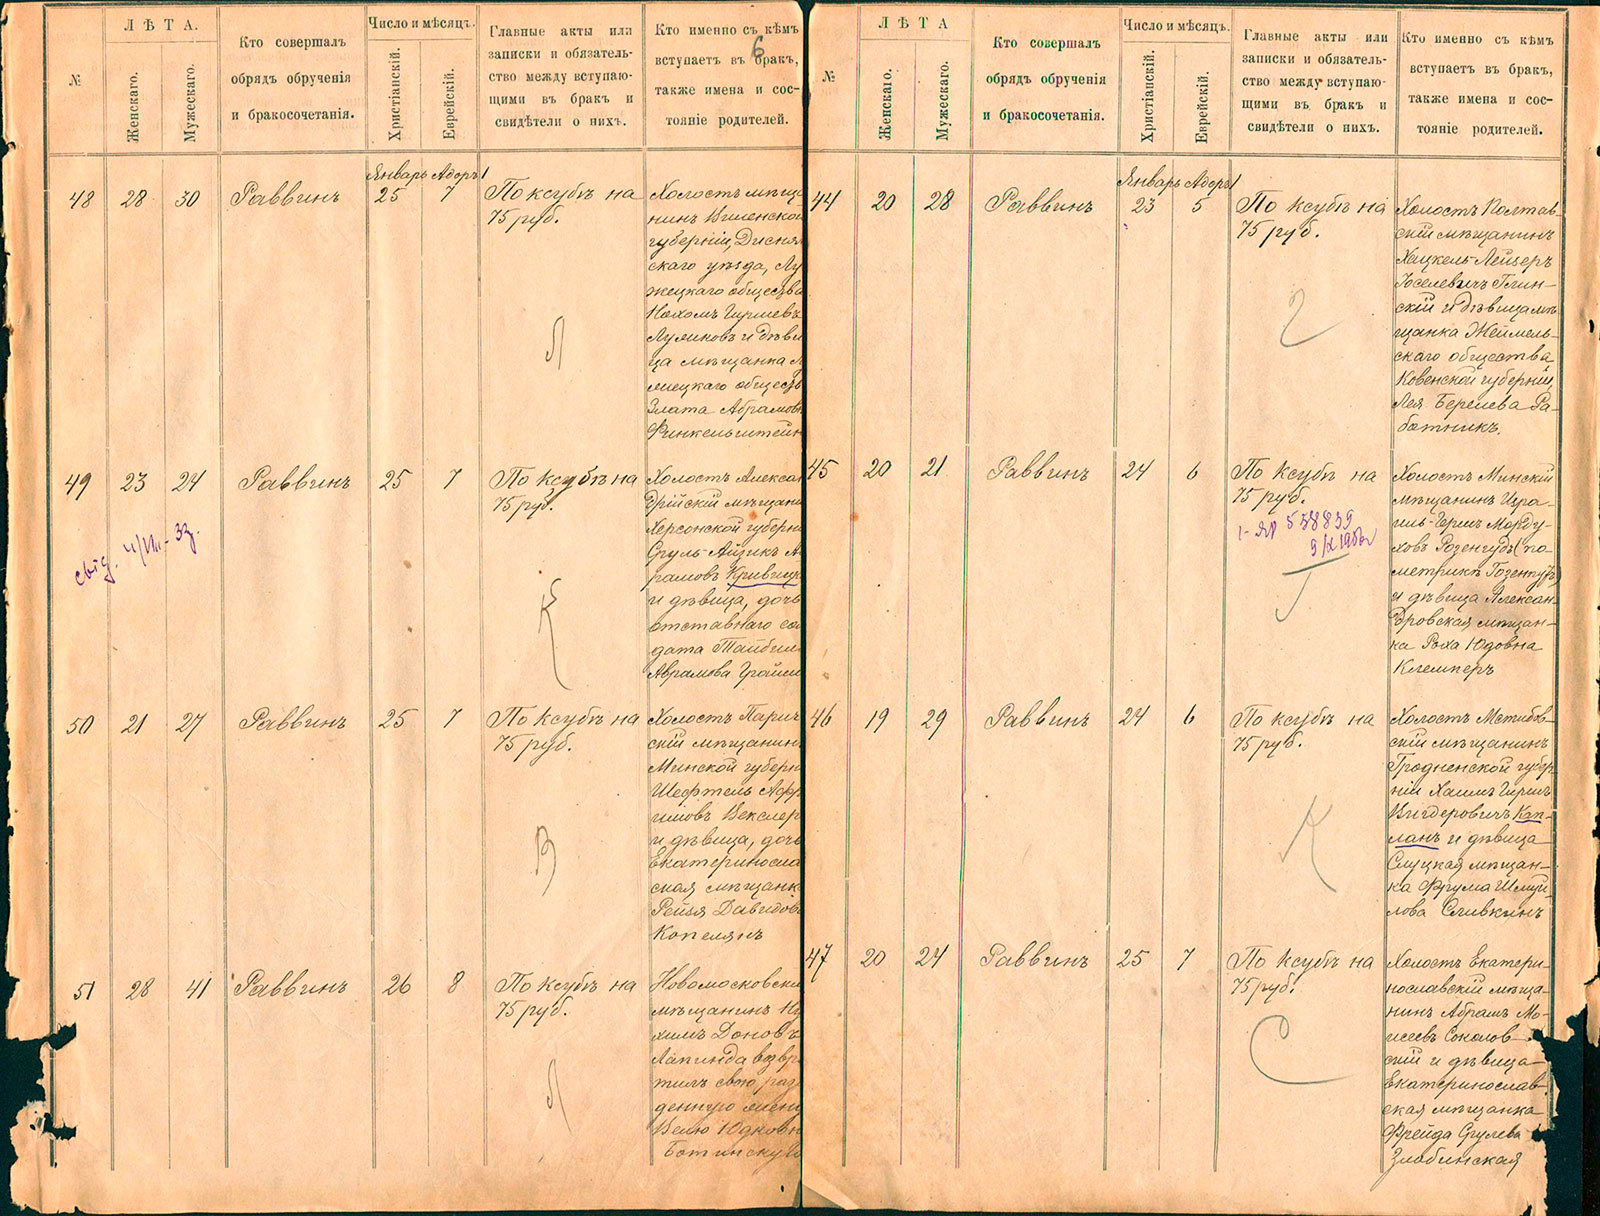 №
ЛѢТА.
Женскаго.
Мужескаго.
Кто совершалъ
обрядъ обрученія
и бракосочетанія.
Число и мѣсяцъ.
Христіанскій.
Еврейскій.
Главные акты или
записки и обязатель-
ство между вступаю-
щими въ бракъ и
свидѣтели о нихъ.
Кто именно съ кѣмъ
вступаетъ въ бракъ,
также имена и сос-
тояніе родителей.
6
Январь Адоръ 1
48 28 30 Раввинъ 25 7 По ксубѣ на
75 руб.
Холостъ мѣща
нинъ Виленской
губерніи, Диснен
скаго уѣзда, Лу
жецкаго общества
Нохомъ Гиршевъ
и дѣви
ца мѣщанка
общест
Злата Абрамов
Финкельштейн
Л
49 23 24 Раввинъ 25 7 По ксубѣ на
75 руб.
Холостъ Алексан
дрійскій мѣщани
Херсонской губерн
Сруль-Айзикъ А
рамовъ Кривиц
и дѣвица, дочь
отставнаго сол
дата
Аврамова
К
50 21 27 Раввинъ 25 7 По ксубѣ на
75 руб.
Холостъ Парич
скій мѣщанин
Минской губерн
Шефтель Афр
имовъ Векслер
и дѣвица, дочь
Екатериносла
ская мѣщанк
Рейзя Давидов
Копелянъ
В
51 28 41 Раввинъ 26 8 По ксубѣ на
75 руб.
Новомосковски
мѣщанинъ
Доновъ
возвра
тилъ свою раз
денную жену
Велю Юдковн
Ботинскую
Л
№
ЛѢТА
Женскаго.
Мужескаго.
Кто совершалъ
обрядъ обрученія
и бракосочетанія.
Число и мѣсяцъ.
Христіанскій.
Еврейскій.
Главные акты или
записки и обязатель-
ство между вступаю-
щими въ бракъ и
свидѣтели о нихъ.
Кто именно съ кѣмъ
вступаетъ въ бракъ,
также имена и сос-
тояніе родителей.
Январь Адоръ 1
44 20 28 Раввинъ 23 5 По ксубѣ на
75 руб.
Холостъ Полтав-
скій мѣщанинъ
Хацкель-Лейзеръ
Іоселевичъ Глин-
скій и дѣвица мѣ
щанка Жеймель-
скаго общества
Ковенской губерніи,
Лея Берелева Ра-
ботникъ.
Г
45 20 21 Раввинъ 24 6 По ксубѣ на
75 руб.
Холостъ Минскій
мѣщанинъ Изра-
иль-Гершъ Морду-
ховъ Розенгубъ (по
метрикѣ
и дѣвица Алексан-
дровская мѣщан-
ка Роха Юдовна
Клемперъ
46 19 29 Раввинъ 24 6 По ксубѣ на
75 руб.
Холостъ Мстибов-
скій мѣщанинъ
Гродненской губер
ніи Хаимъ Гиршъ
Вигдеровичъ Кап-
ланъ и дѣвица
Слуцкая мѣщан-
ка Фрума Шмуй
лова Сливкинъ
К
47 20 24 Раввинъ 25 7 По ксубѣ на
75 руб.
Холостъ Екатери-
нославскій мѣща-
нинъ Абрамъ Мо-
исеевъ Соколов-
скій и дѣвица
Екатеринослав-
ская мѣщанка
Фрейда Срулева
Злобинская
С